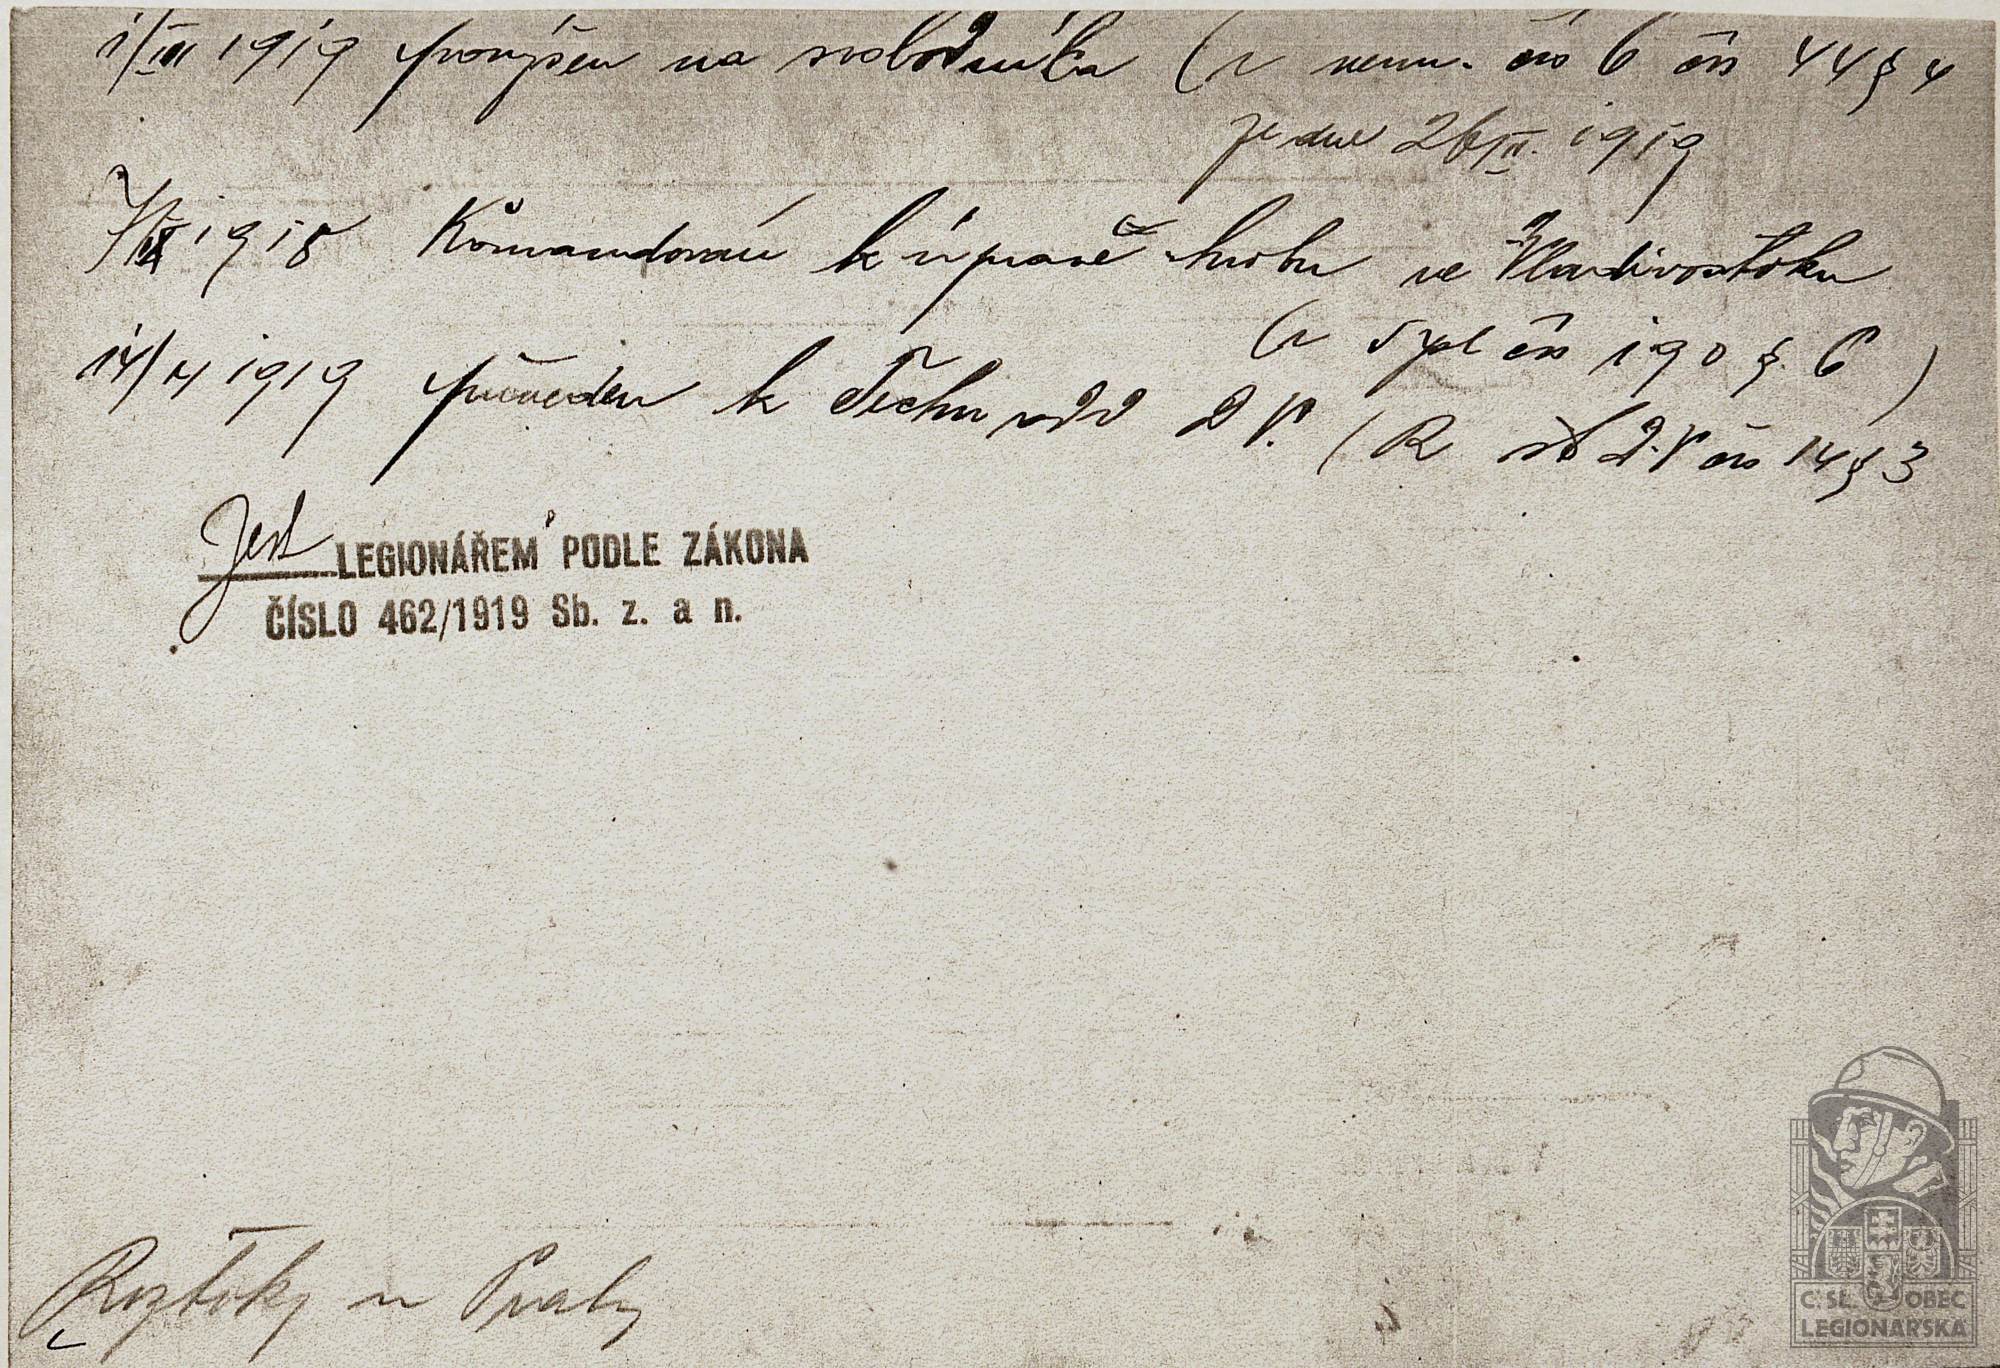 1/III 1919 povýšen na svobodníka (v nem. čís 6 čís 44 § 4
ze dne 26/II. 1919
7/IX 1918 Komandován k úpravě hrobu ve Vladivostoku
(v čís 190 §. 6)
14/VI 1919 převeden k Těchn odd 2 V. (R 2. V čís 14 § 3
Jest LEGIONÁŘEM PODLE ZÁKONA
ČÍSLO 462/1919 Sb. z. a n.
Roztoky u Prahy
Č. SL. OBEC
LEGIONÁŘSKÁ